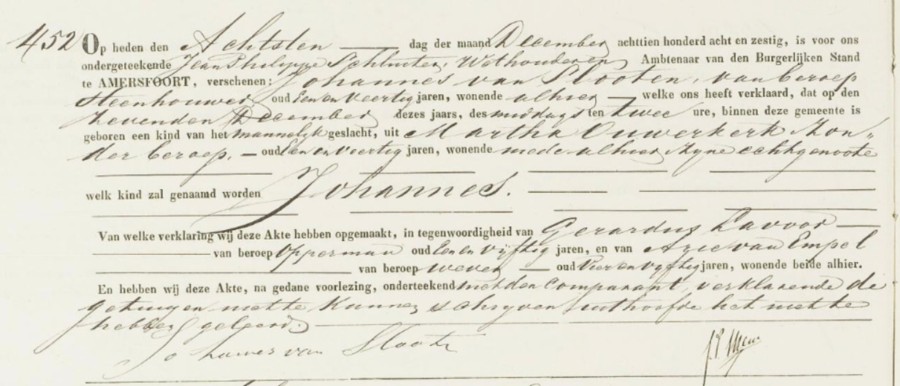 452 Op heden den Achtsten dag der maand December achttien honderd acht en zestig, is voor ons
ondergeteekende Jean Philippe Schluiter, Wethouder en Ambtenaar van den Burgerlijken Stand
te AMERSFOORT, verschenen: Johannes van Slooten, van beroep
Steenhouwer oud Een en veertig jaren, wonende alhier welke ons heeft verklaard, dat op den
zevenden December dezes jaars, des middags ten twee ure, binnen deze gemeente is
geboren een kind van het mannelijk geslacht, uit Martha Ouwerkerk Zon„
der beroep, — oud Een en veertig jaren, wonende mede alhier Zyne echtgenoote
welk kind zal genaamd worden Johannes.
Van welke verklaring wij deze Akte hebben opgemaakt, in tegenwoordigheid van Gerardus Lavoor
van beroep Opperman oud Een en vyftig jaren, en van Arie van Empel
van beroep wever oud Vier en vyftig jaren, wonende beide alhier.
En hebben wij deze Akte, na gedane voorlezing, onderteekend met den Comparant, verklarende de
getuigen niet te kunnen schryven uit hoofde het niet te
hebben geleerd
Johannes van Sloote